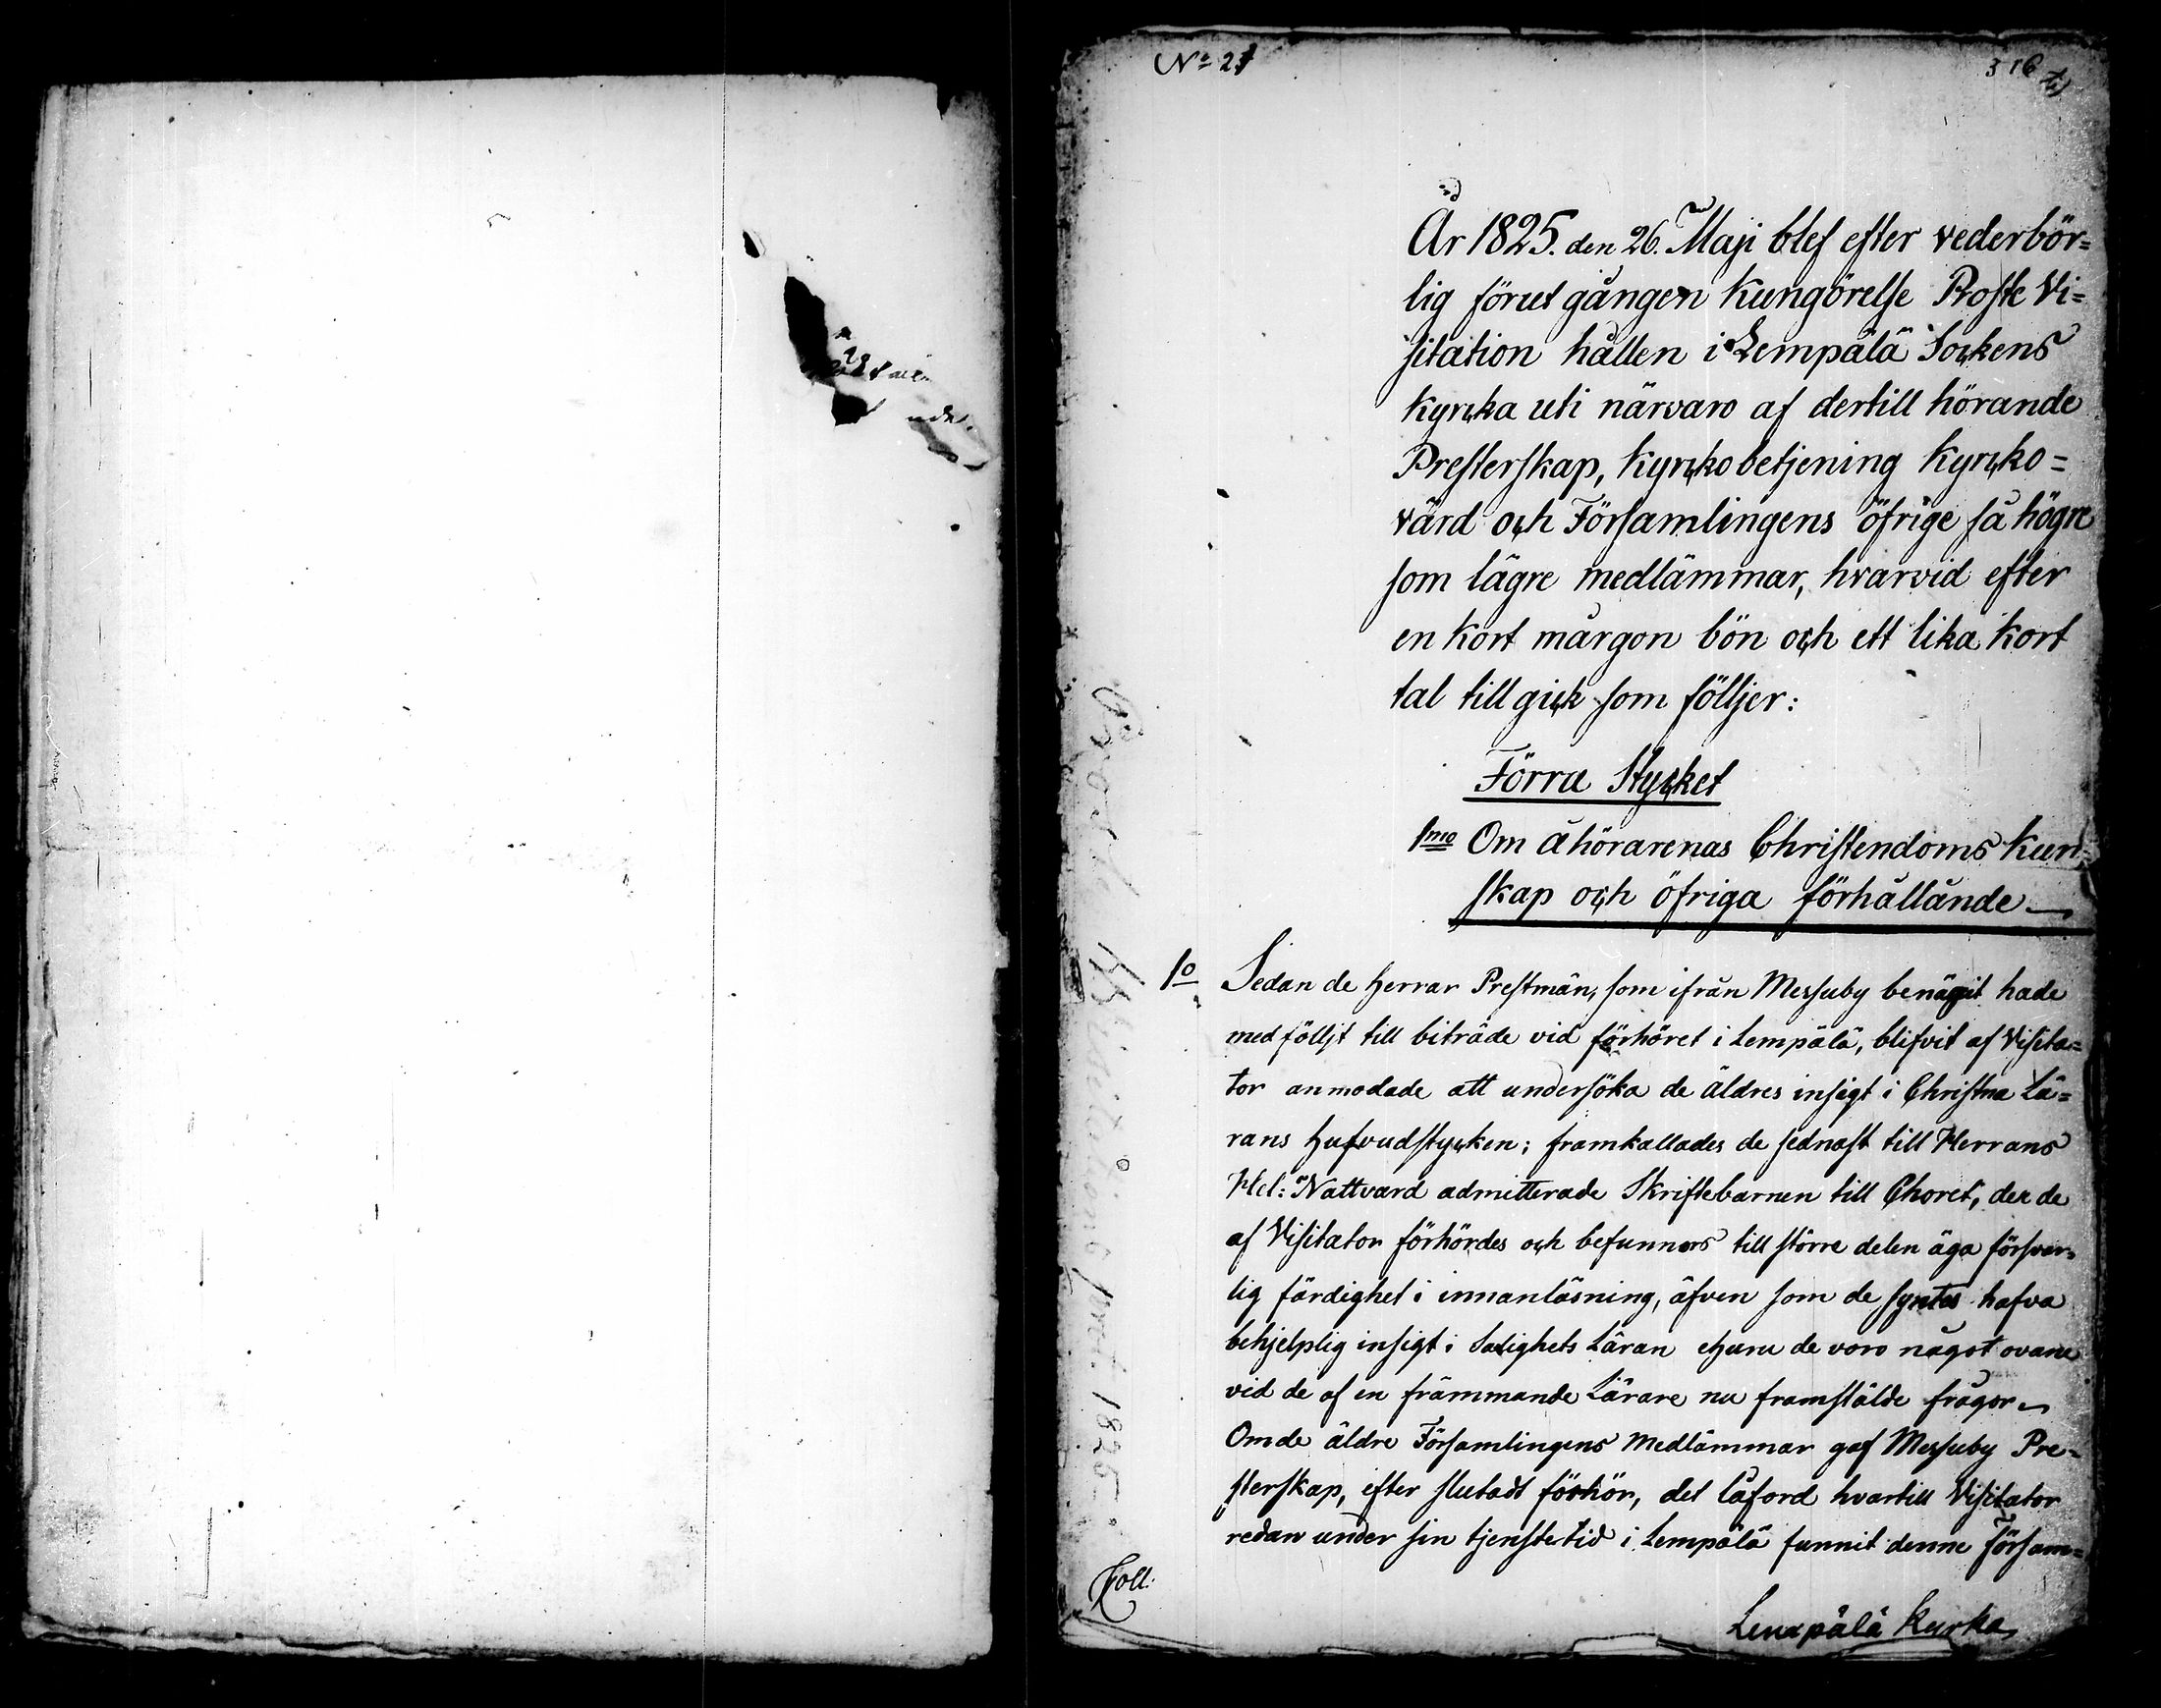 No 27
316
År 1825. den 26. Maji blef efter vederbör=
lig förut gången Kungörelse Proste Vi=
sitation hållen i Lempälä Sockens
Kyrcka uti närvaro af dertill hörande
Presterskap, Kyrckobetjening Kyrcko=
värd och Församlingens öfrige så högre
som lägre medlämmar, hvarvid efter
en kort märgon bön och ett lika kort
tal tillgick som följjer:
Förra Stycket
1mo Om åhörarenas Christendoms Kun=
skap och öfriga förhållånde
1o Sedan de herrar Prestmän, som ifrån Messuby benägit hade
medföljt till biträde vid förhöret i Lempälä, blifvit af Visita=
tor anmodade att undersöka de äldres insigt i Christna Lä=
rans hufvudstycken; framkallades de sednast till Herrans
Hel: Nattvard admitterade Skriftebarnen till Choret, der de
af Visitator förhördes och befunnos till större delen äga försvar=
lig färdighet i innanläsning, äfven som de syntes hafva
behjelplig insigt i Salighets Läran ehuru de voro något ovane
vid de af en främmande Lärare nu framstälde frågor
Om de äldre Församlingens medlämmar gaf Messuby Pre=
sterskap, efter slutadt förhör, det låford hvartill Visitator
redan under sin tjenstetid i Lempälä funnit denne Församl=
Proste Visitations prot. 1825.
Coll.
Lempälä Kyrka